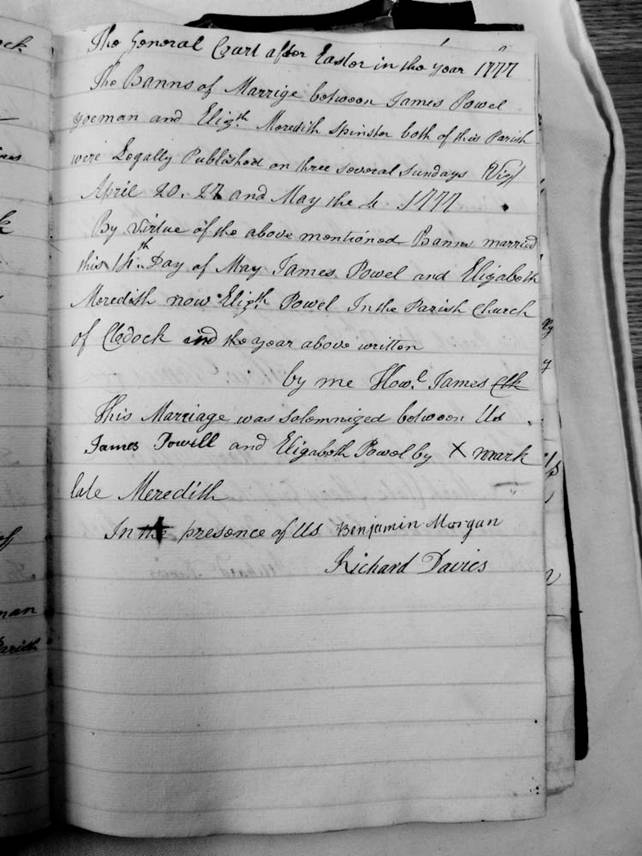 The General Court after Easter in the year 1777
The Banns of Marrige between James Powel
yeoman and Elizth Meredith Spinster both of this Parish
were Legally Published on three several Sundays Vizt
April 20. 27 and May the 4 1777
By Virtue of the above mentioned Banns married
this 14th Day of May James Powel and Elizabeth
Meredith now Elizth Powel In the Parish Church
of Clodock and the year above written
by me Howl James Clk
This Marriage was solemnized between Us
James Powill and Elizabeth Powel by X mark
late Meredith
In the presence of Us Benjamin Morgan
Richard Davies